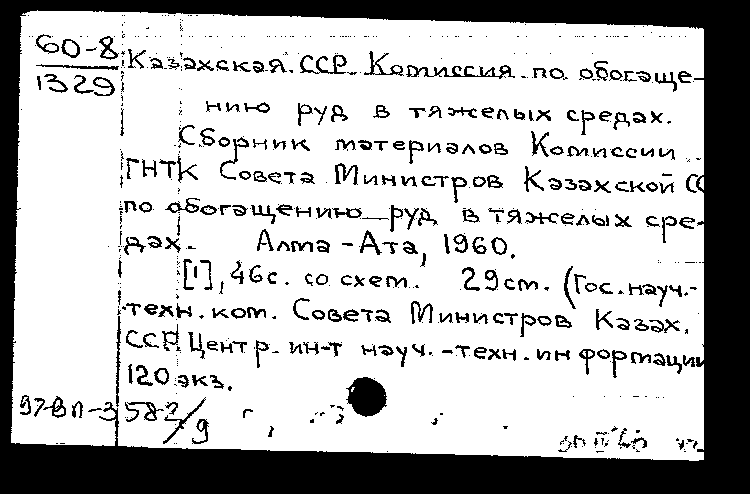 60-8
1329
Казахская ССР. Комиссия по обогаще-
нию руд в тяжелых средах.
Сборник материалов Комиссии
ГНТК Совета Министров Казахской
по обогащению руд в тяжелых сре-
дах. Алма-Ата, 1960.
[1], 46с. со схем. 29см. (Гос. науч.-
техн. ком. Совета Министров Казах.
ССР. Центр. ин-т науч.-техн. информации
120 экз.
582/9